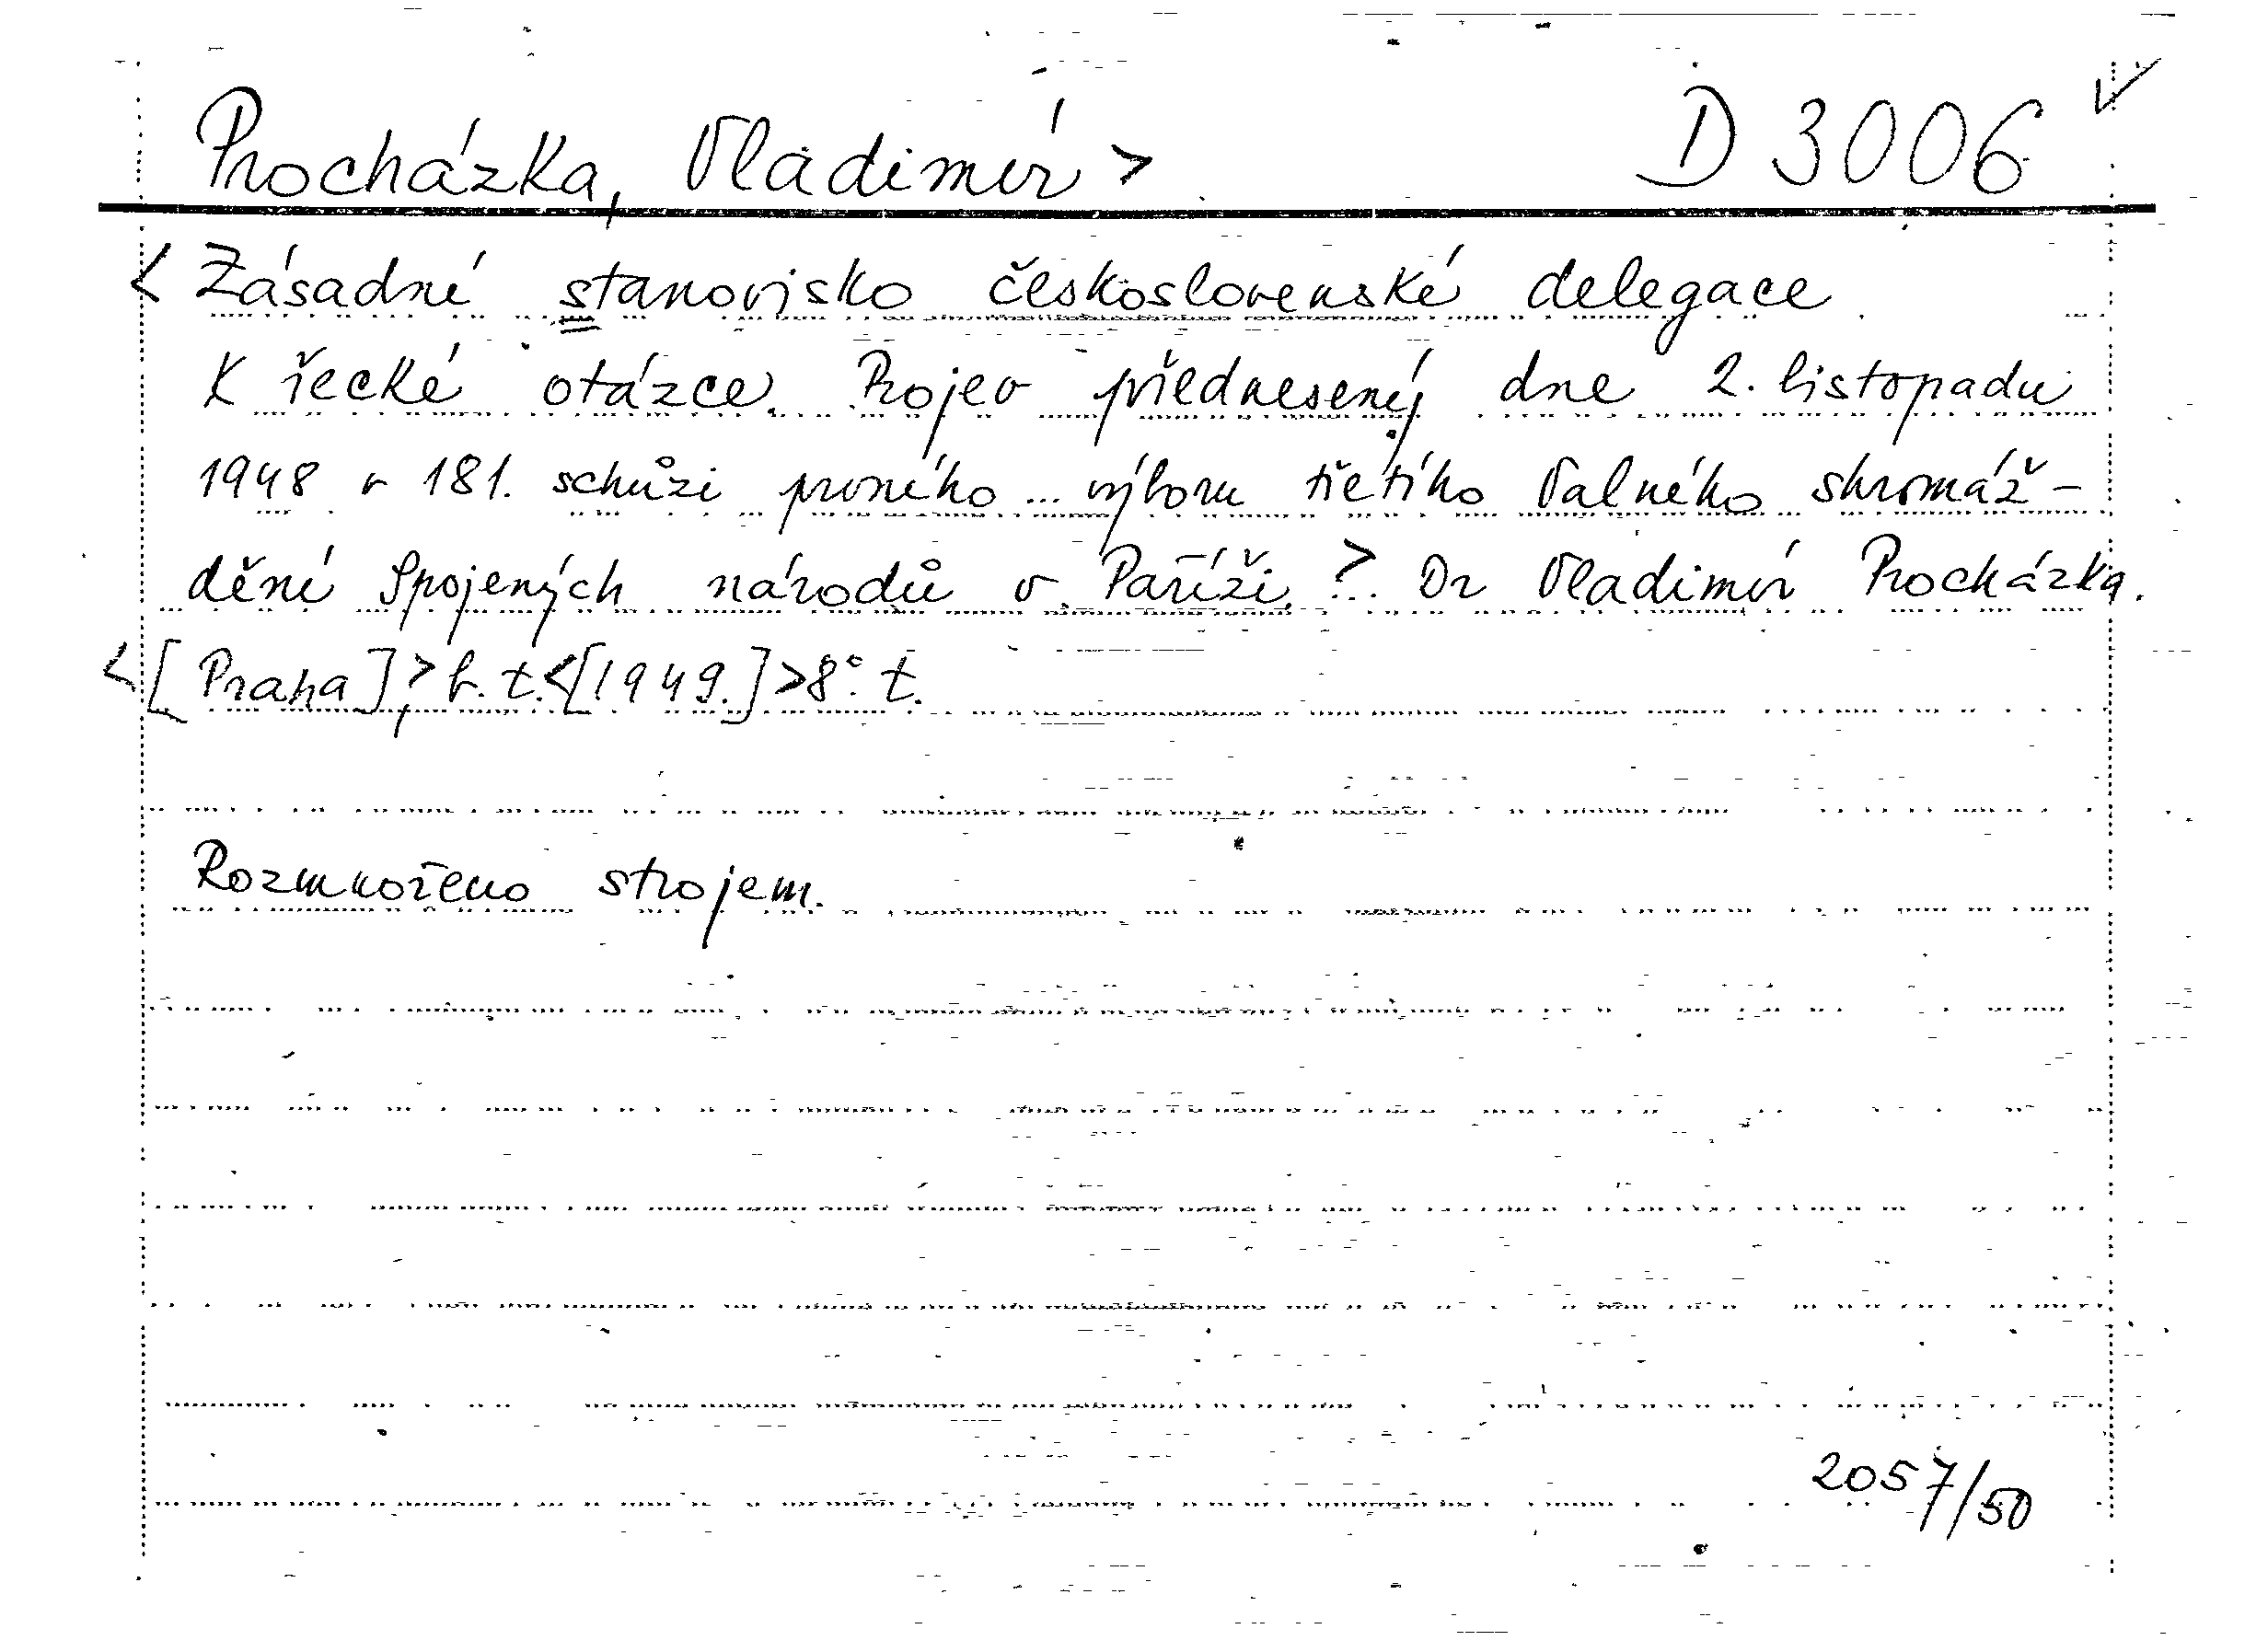 Procházka, Vladimír > D 3006 ✓
< Zásadní stanovisko československé delegace
k řecké otázce. Projev přednesený dne 2. listopadu
1948 v 181. schůzi prvního ... výboru třetího Valného shromáž-
dění Spojených národů v Paříži. > Dr Vladimír Procházka.
< [Praha], > b. t. < [1949.] > 8°. t.
Rozmnoženo strojem.
2057/50